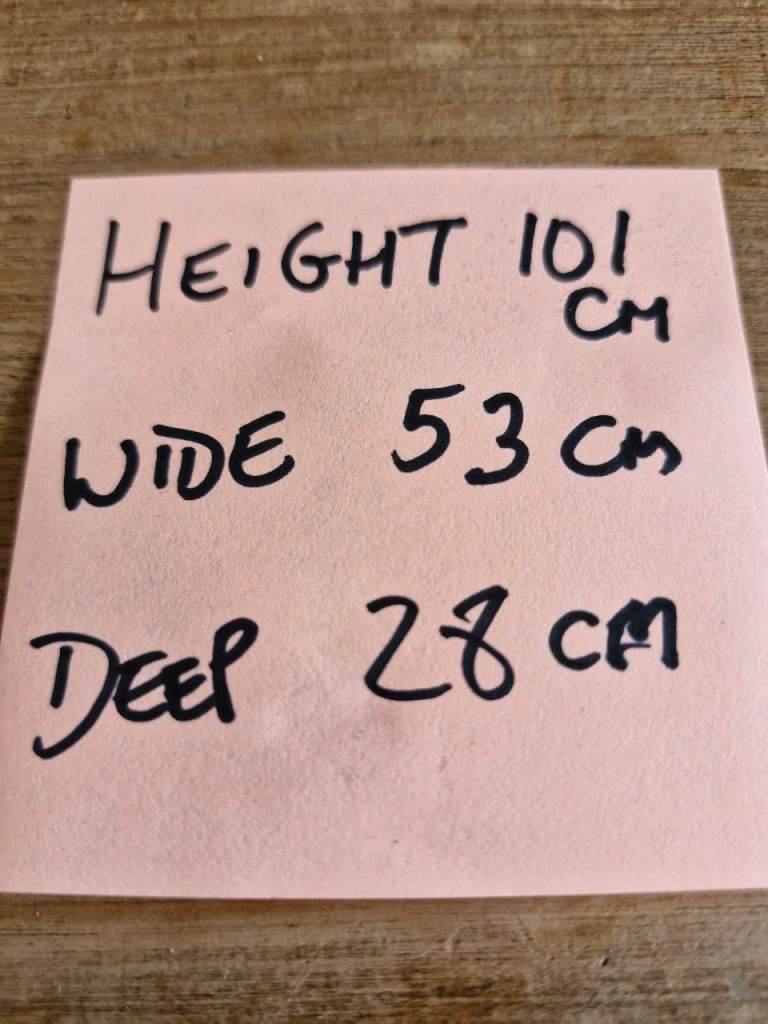 HEIGHT 101
CM
WIDE 53 CM
DEEP 28 CM